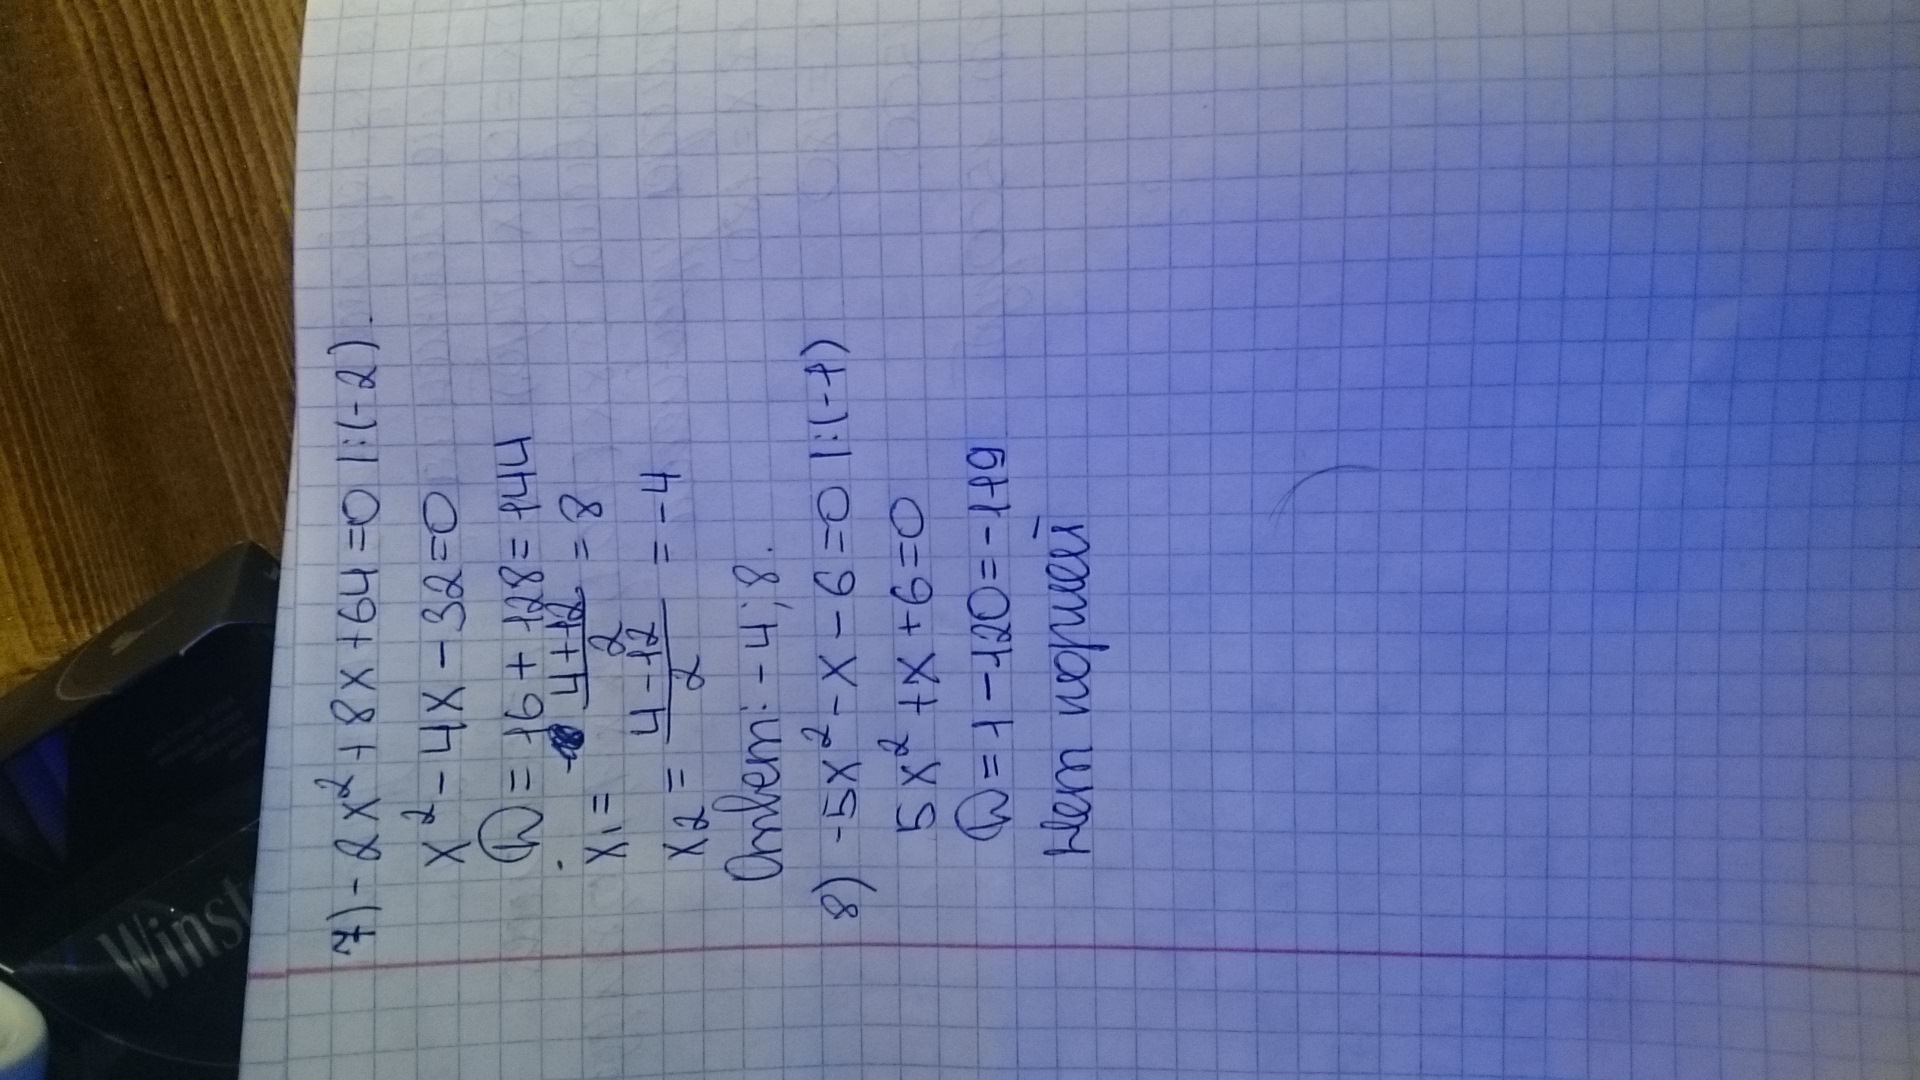 7) -2x²+8x+64=0 |:(-2).
x²-4x-32=0
D=16+128=144
x₁= 4+12/2 =8
x₂= 4-12/2 =-4
Ответ: -4; 8.
8) -5x²-x-6=0 |:(-1)
5x²+x+6=0
D=1-120=-119
Нет корней
Winst